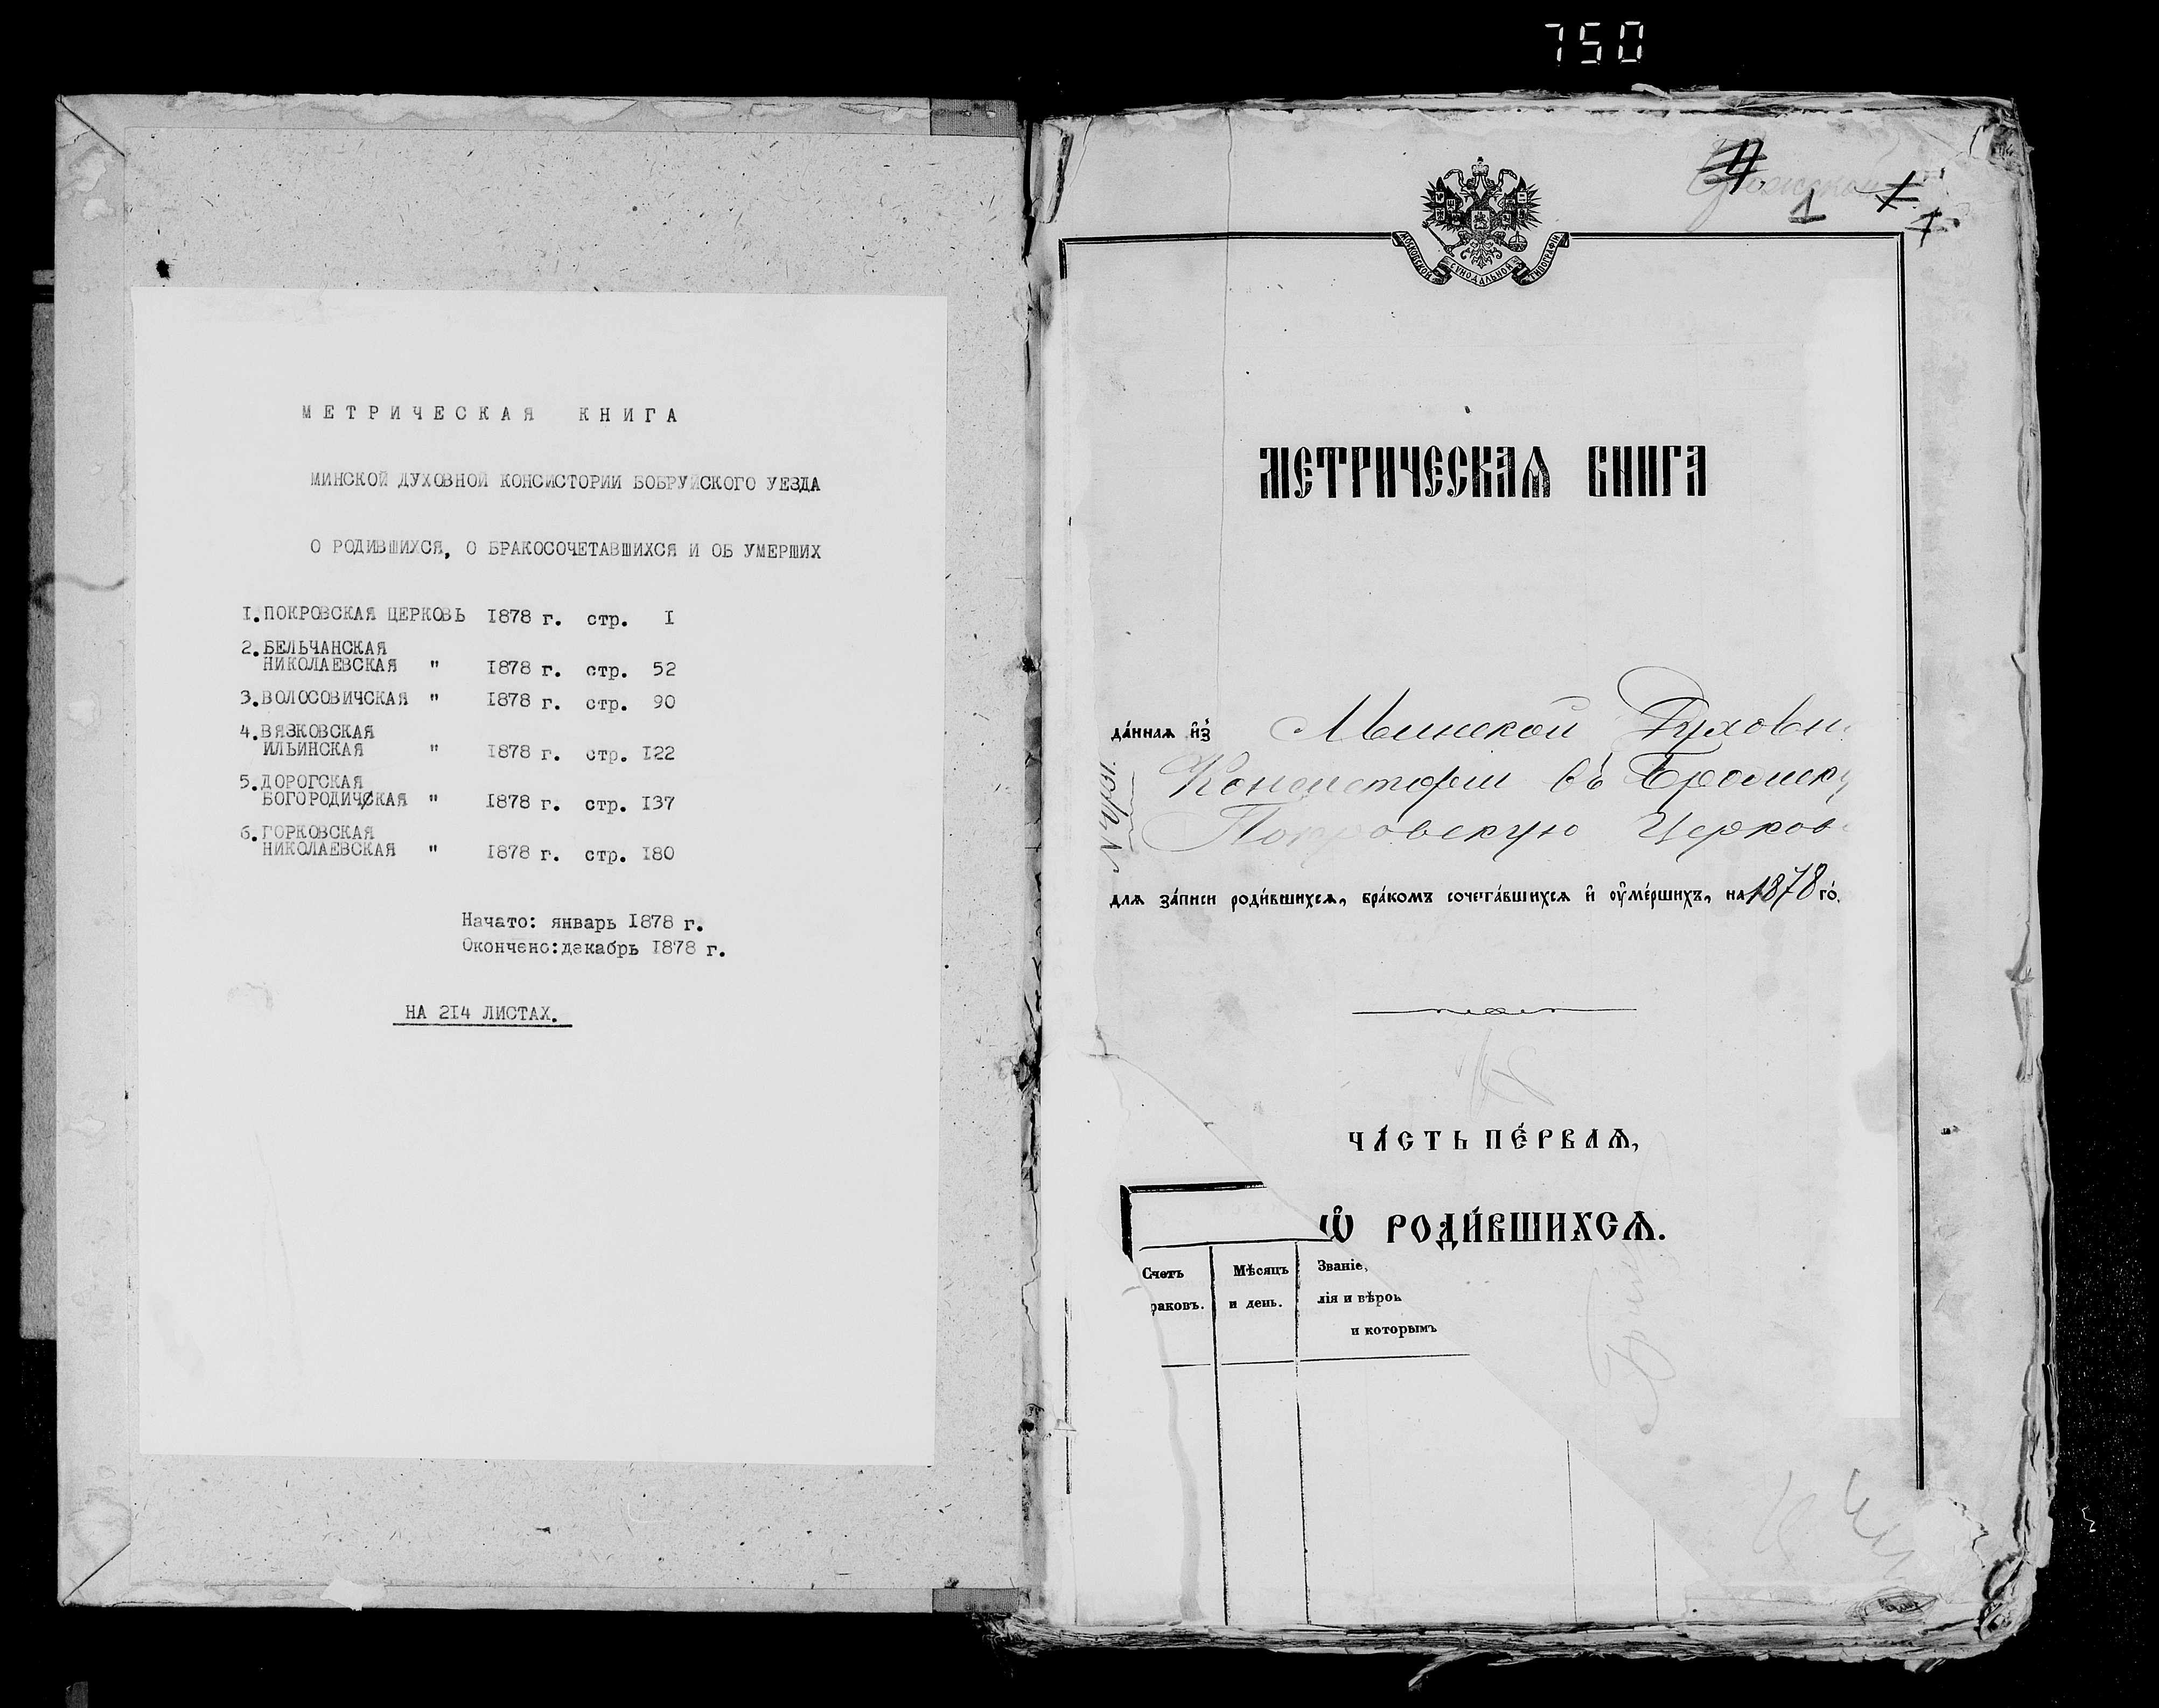 750
МЕТРИЧЕСКАЯ КНИГА
МИНСКОЙ ДУХОВНОЙ КОНСИСТОРИИ БОБРУЙСКОГО УЕЗДА
О РОДИВШИХСЯ, О БРАКОСОЧЕТАВШИХСЯ И ОБ УМЕРШИХ
I. ПОКРОВСКАЯ ЦЕРКОВЬ I878 г. стр. I
2. БЕЛЬЧАНСКАЯ
НИКОЛАЕВСКАЯ " I878 г. стр. 52
3. ВОЛОСОВИЧСКАЯ " I878 г. стр. 90
4. ВЯЗКОВСКАЯ
ИЛЬИНСКАЯ " I878 г. стр. I22
5. ДОРОГСКАЯ
БОГОРОДИЧСКАЯ " I878 г. стр. I37
6. ГОРКОВСКАЯ
НИКОЛАЕВСКАЯ " I878 г. стр. I80
Начато: январь I878 г.
Окончено: декабрь I878 г.
НА 2I4 ЛИСТАХ.
1
МОСКОВСКОЙ СѴНОДАЛЬНОЙ ТИПОГРАФІИ
МЕТРИЧЕСКАѦ КНИГА
да́ннаѧ и҆з̾ Минской Духовн
Консисторіи въ
Покровскую Церков
длѧ за́писи роди́вшихсѧ, бра́комъ сочета́вшихсѧ и҆ ᲂу҆ме́ршихъ, на 1878 го́.
ЧА́СТЬ ПЕ́РВАѦ,
Ѡ҆ РОДИ́ВШИХСѦ.
Счетъ
раковъ.
Мѣсяцъ
и день.
Званіе,
лія и вѣрои
и которымъ